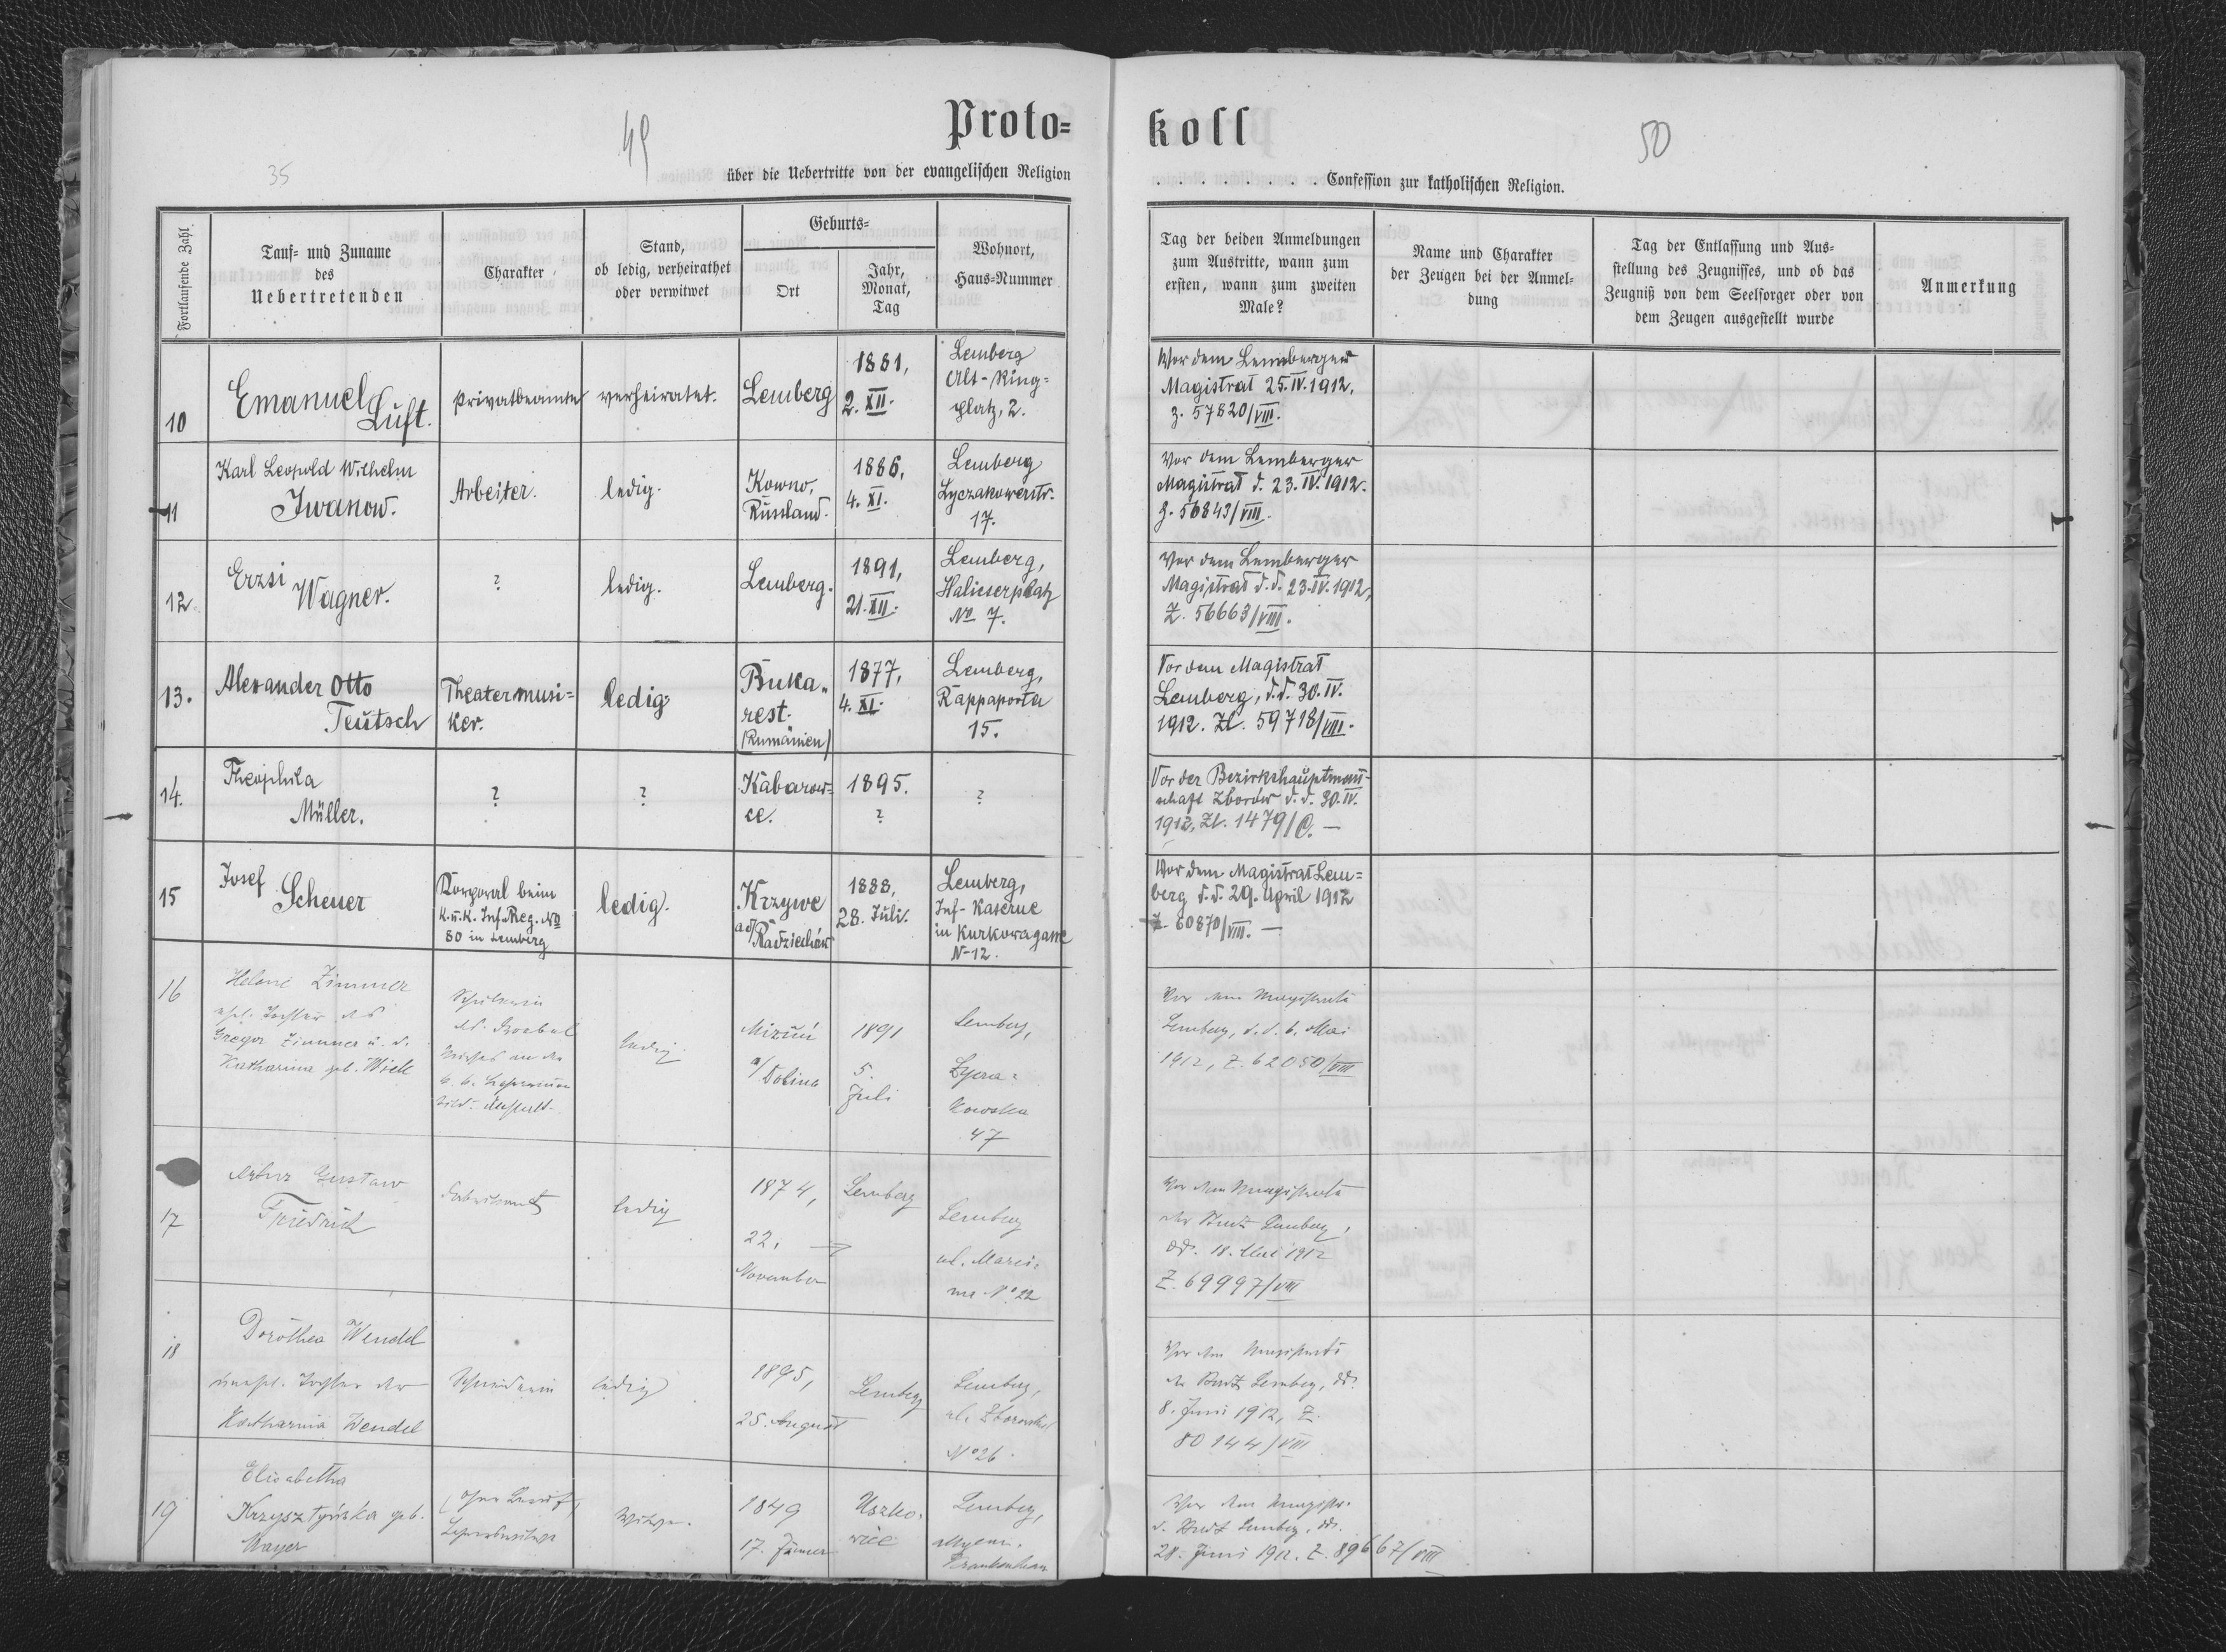 Proto=
koll
49
50
35
über die Uebertritte von der evangelischen Religion
. . . . . . . . Confession zur katholischen Religion.
Fortlaufende Zahl
Tauf= und Zuname
des
Uebertretenden
Charakter
Stand,
ob ledig, verheirathet
oder verwitwet
Geburts=
Ort
Jahr,
Monat,
Tag
Wohnort,
Haus=Nummer
Tag der beiden Anmeldungen
zum Austritte, wann zum
ersten, wann zum zweiten
Male?
Name und Charakter
der Zeugen bei der Anmel=
dung
Tag der Entlassung und Aus=
stellung des Zeugnisses, und ob das
Zeugniß von dem Seelsorger oder von
dem Zeugen ausgestellt wurde
Anmerkung
10
Emanuel
Luft.
Privatbeamter
verheiratet.
Lemberg
1881,
2. XII.
Lemberg
Alt-Ring=
platz, 2.
Vor dem Lemberger
Magistrat 25.IV.1912,
z. 57820/VIII.
11
Karl Leopold Wilhelm
Iwanow.
Arbeiter.
ledig.
Kowno,
Russland.
1886,
4. XI.
Lemberg
Lyczakowerstr.
17.
Vor dem Lemberger
Magistrat d. 23.IV.1912.
z. 56843/VIII.
12
Erzsi
Wagner.
?
ledig.
Lemberg.
1891,
21. XII.
Lemberg,
Halicserplatz
No 7.
Vor dem Lemberger
Magistrat d.d. 23.IV.1912,
Z. 56663/VIII.
13.
Alexander Otto
Teutsch
Theatermusi=
ker.
ledig
Buka=
rest.
(Rumänien)
1877,
4. XI.
Lemberg,
Rappaporta
15.
Vor dem Magistrat
Lemberg, d.d. 30.IV.
1912. Zl. 59718/VIII.
14.
Theophila
Müller.
?
?
Kabarow=
ce.
1895.
?
?
Vor der Bezirkshauptmann=
schaft Zborów d.d. 30.IV.
1912, Zl. 1479/C. —
15
Josef
Scheuer
Korporal beim
K.u.K. Inf. Reg. No
80 in Lemberg
ledig.
Krzywe
ad/Radziechów
1888,
28. Juli.
Lemberg,
Inf-Kaserne
in Kurkowagasse
N-12.
Vor dem Magistrat Lem=
berg d.d. 29. April 1912
Z. 60870/VIII. —
16
Helene Zimmer
ehel. Tochter des
Gregor Zimmer u. d.
Katharina geb. Wiek
Schülerin
an der
ledig
Mizuń
a/Dolina
1891
5.
Juli
Lemberg,
Lycza=
kowska
47
Vor dem Magistrate
Lemberg, d.d. 6. Mai
1912, Z. 62050/VIII
17
Artur Gustaw
Friedrich
ledig
1874,
22.
November
Lemberg
Lemberg
ul. Marci=
na No 22
Vor dem Magistrate
der Stadt Lemberg,
dd. 18. Mai 1912
Z. 69997/VIII
18
Dorothea Wendel
unehel. Tochter der
Katharina Wendel
Schneiderin
ledig
1895,
25. August
Lemberg
Lemberg,
ul. Zborowska
No 26.
Vor dem Magistrate
der Stadt Lemberg, dd.
8. Juni 1912, Z.
80144/VIII
19
Elisabetha
Krzysztyńska geb.
Mayer
Witwe.
1849
17. Jänner
Uszko=
wice
Lemberg,
allgem.
Krankenhaus
Vor dem Magistr.
d. Stadt Lemberg, dd.
28. Juni 1912. Z. 89667/VIII